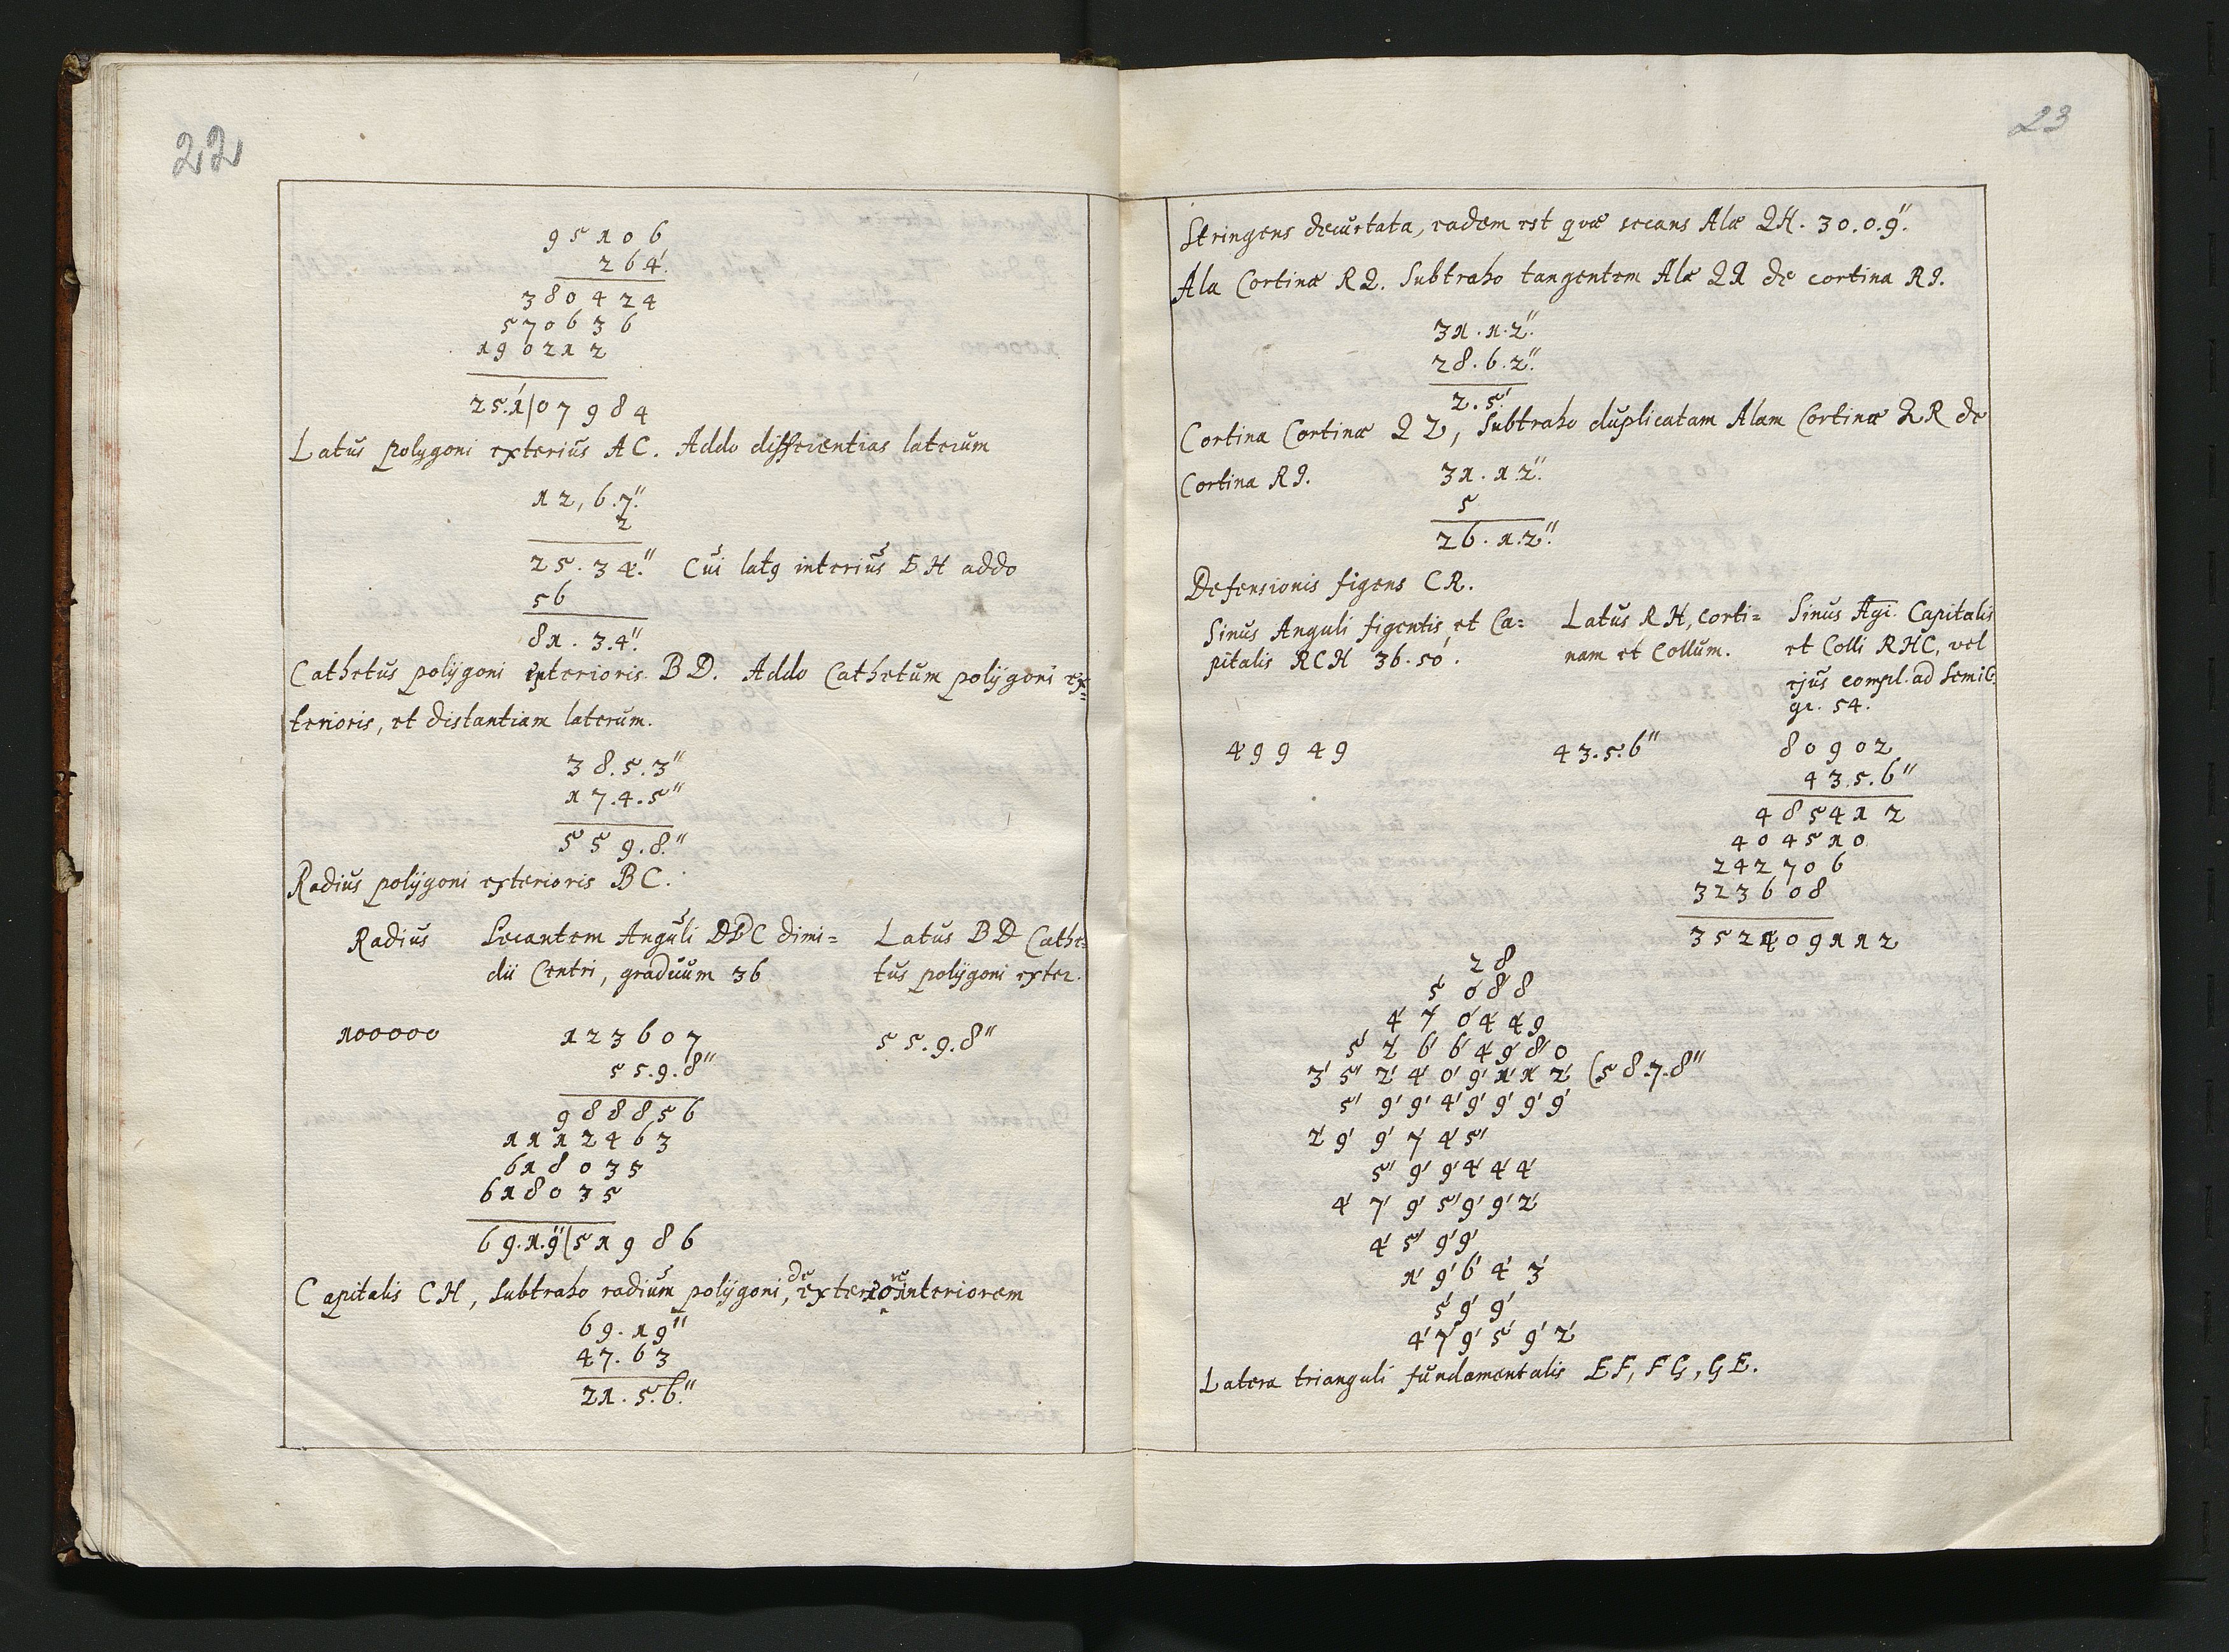 22
95106
264.
380424
570636
190212
25.1|07984
Latus polygoni exterius AC. Addo differentias laterum
12,6.7."
2
25.34." Cui latq interius EH addo
56
81.3.4."
Cathetus polÿgoni exterioris BD. Addo Cathetum polÿgoni ex=
terioris, et distantiam laterum.
38.5.3"
17.4.5"
559.8."
Radius polÿgoni exterioris BC.
Radius Secantem Anguli DBC dimi= Latus BD Cathe=
dii Centri, graduum 36 tus polÿgoni exter.
100000 123607 55.9.8"
55.9.8"
988856
1112463
618035
618035
69.1.9"|51986
Capitalis CH, Subtraho radium polÿgoni, de exteriore interiorem
69.19"
47.63
21.5.6."
23
Stringens decurtata, eadem est quæ secans Alæ QH. 30.0.9."
Ala Cortinæ RQ. Subtraho tangentem Alæ QI de cortina RI.
31.1.2."
28.6.2."
2.5'
Cortina Cortinæ QZ, Subtraho duplicatam Alam Cortinæ QR de
Cortina RI. 31.1.2."
5
26.1.2."
Defensionis figens CR.
Sinus Anguli figentis, et Ca= Latus RH, corti= Sinus Agi. Capitalis
pitalis RCH 36.50'. nam et Collum. et Colli RHC, vel
ejus compl. ad Semic.
gr. 54.
49949 43.5.6" 80902
43.5.6"
485412
404510
242706
323608
352409112
28
5088
470449
52664980
352409112 (58.7.8"
59949999
299745
599444
4795992
4599
19643
599
479592
Latera trianguli fundamentalis EF, FG, GE.